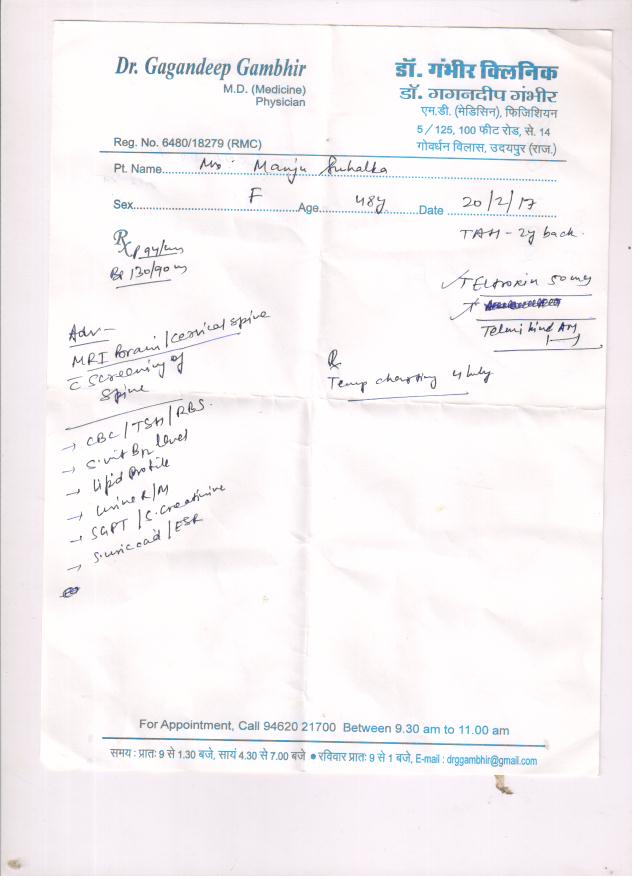 Dr. Gagandeep Gambhir
M.D. (Medicine)
Physician
Reg. No. 6480/18279 (RMC)
डॉ. गंभीर क्लिनिक
डॉ. गगनदीप गंभीर
एम.डी. (मेडिसिन), फिजिशियन
5/125, 100 फीट रोड, से. 14
गोवर्धन विलास, उदयपुर (राज.)
Pt. Name Mrs. Manju Suhalka
Sex F Age 48y Date 20/2/17
TAH - 2y back.
Rx
P 94/m
BP 130/90 m
50 mg
Telmikind AM
Adv-
MRI Brain / Cervical Spine
C Screening of
Spine
Rx
Temp charting 4 hrly
→ CBC / TSH / RBS.
→ S. vit B12 level
→ Lipid Profile
→ Urine R/M
→ SGPT / S. Creatinine
→ S. uric acid / ESR
For Appointment, Call 94620 21700 Between 9.30 am to 11.00 am
समय : प्रातः 9 से 1.30 बजे, सायं 4.30 से 7.00 बजे ● रविवार प्रातः 9 से 1 बजे, E-mail : drggambhir@gmail.com